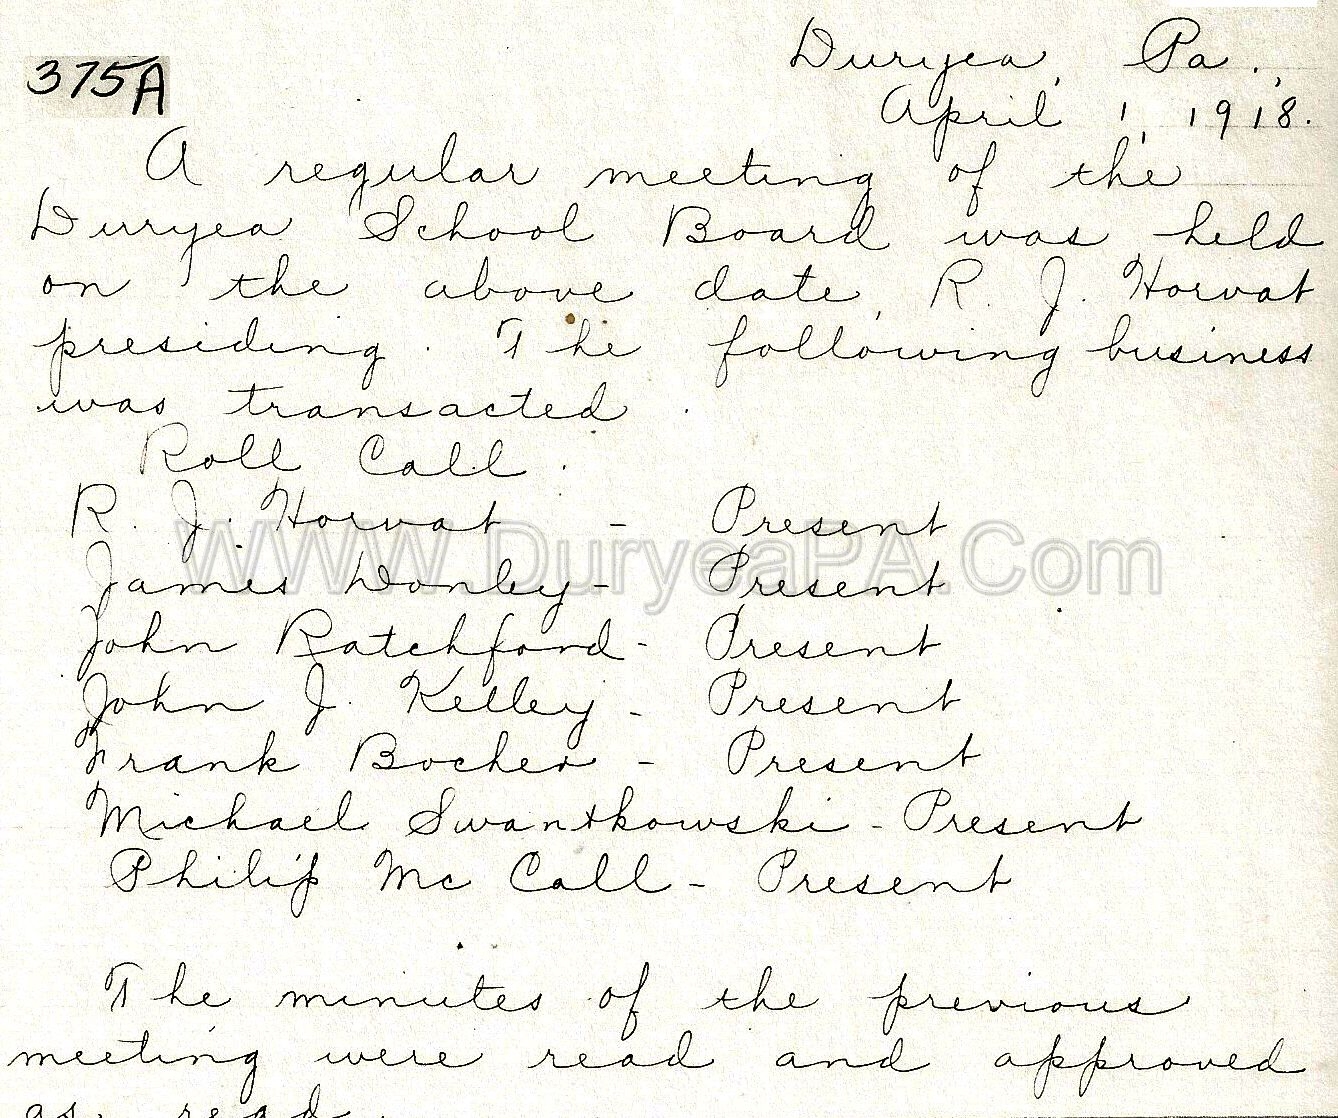 Duryea, Pa.,
375A
April 1, 1918.
A regular meeting of the
Duryea School Board was held
on the above date, R. J. Horvat
presiding. The following business
was transacted.
Roll Call.
R. J. Horvat - Present
WWW.DuryeaPA.Com
James Donley - Present
John Ratchford - Present
John J. Kelley - Present
Frank Bocher - Present
Michael Swantkowski - Present
Philip Mc Call - Present
The minutes of the previous
meeting were read and approved
as read.